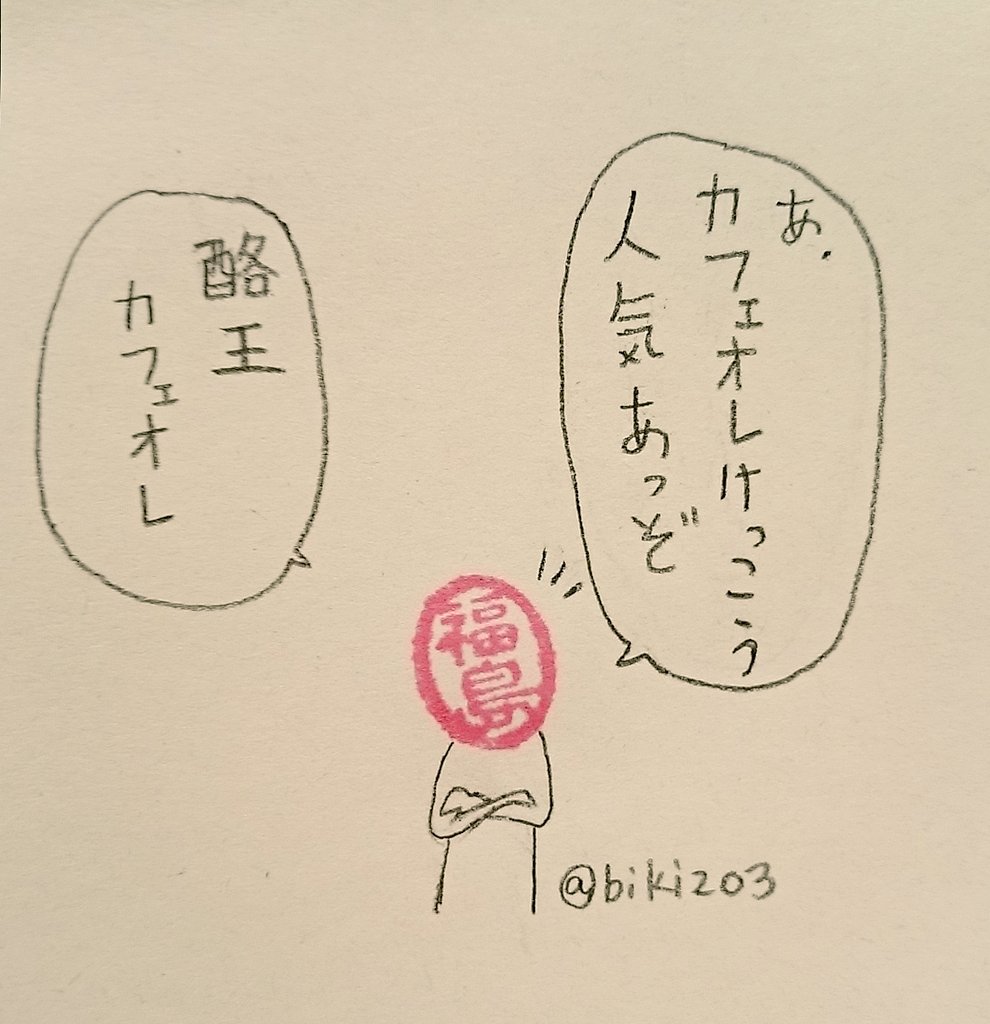 あ.
カフェオレけっこう
人気あっぞ
酪王
カフェオレ
福島
@biki203